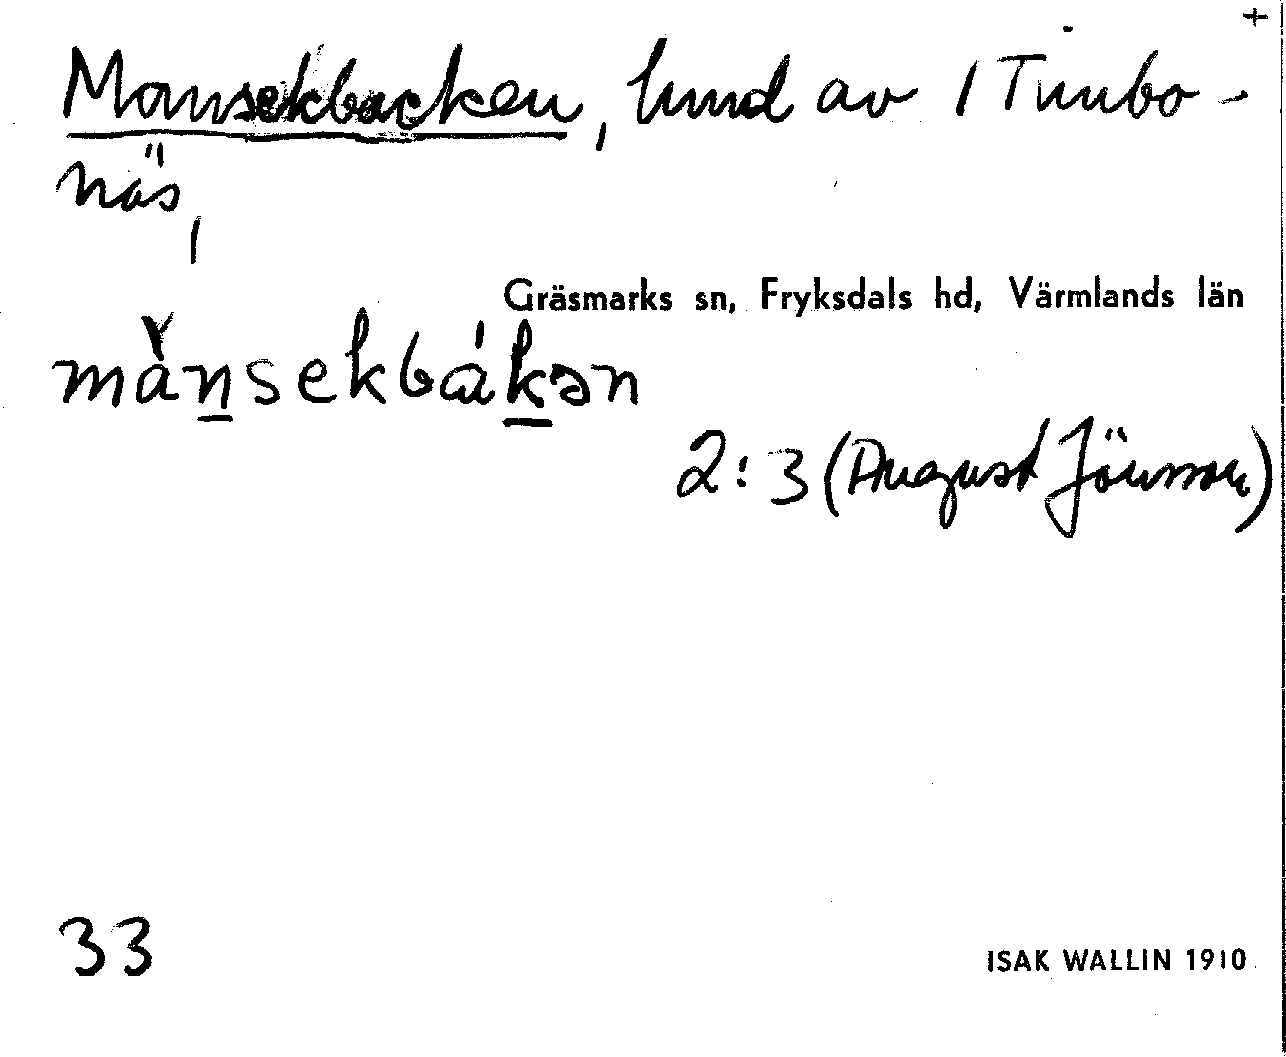 +
Mansekbacken, hund av 1 Timbo-
näs,
Gräsmarks sn, Fryksdals hd, Värmlands län
mànsekbákən
2:3 (August Jönsson)
33
ISAK WALLIN 1910